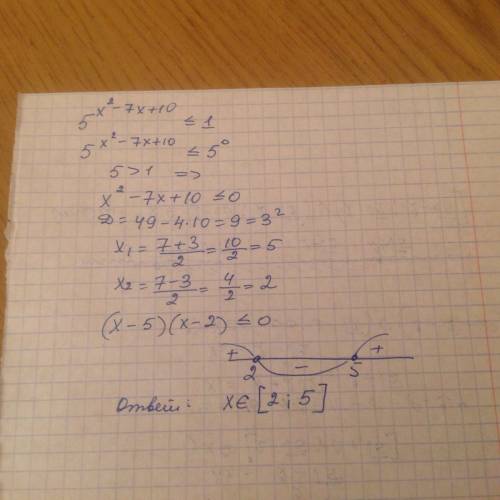 5^{x²-7x+10} ≤ 1
5^{x²-7x+10} ≤ 5⁰
5 > 1 =>
x² - 7x + 10 ≤ 0
D = 49 - 4·10 = 9 = 3²
x₁ = (7+3)/2 = 10/2 = 5
x₂ = (7-3)/2 = 4/2 = 2
(x-5)(x-2) ≤ 0
+ - +
2 5
Ответ: x∈[2;5]